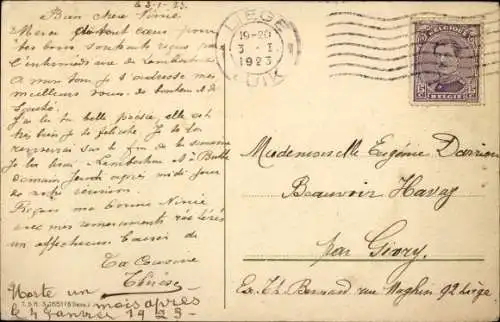 Le 3-1-23.
Bien chère Ninie
Merci de tout cœur pour
tes bons souhaits reçus par
l'intermédiaire de Lambertine
A mon tour je t'adresse mes
meilleurs vœux de bonheur et de
Santé.
J'ai lu ta belle poésie, elle est
très bien je te félicite. Je te la
renverrai sur la fin de la semaine
Je les lirai Lambertine et à Berthe
Demain Jeudi après midi jour
de notre réunion.
Reçois ma bonne Ninie
avec mes remerciements réitérés
un affectueux baiser de
Ta Cousine
Thérèse
Morte un
mois après
le 4 janvier 1923-
LIEGE
19-20
3 - I
1923
LUIK
BELGIQUE
15
15
BELGIE
Mademoiselle Eugénie
Beauvoir Havay
par Givry.
Ex. Th Bernard rue 92 Liège